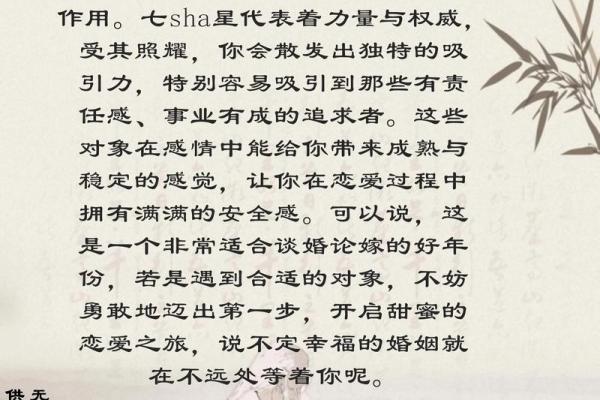 作用。七sha星代表着力量与权威，
受其照耀，你会散发出独特的吸
引力，特别容易吸引到那些有责
任感、事业有成的追求者。这些
对象在感情中能给你带来成熟与
稳定的感觉，让你在恋爱过程中
拥有满满的安全感。可以说，这
是一个非常适合谈婚论嫁的好年
份，若是遇到合适的对象，不妨
勇敢地迈出第一步，开启甜蜜的
恋爱之旅，说不定幸福的婚姻就
在不远处等着你呢。
供无